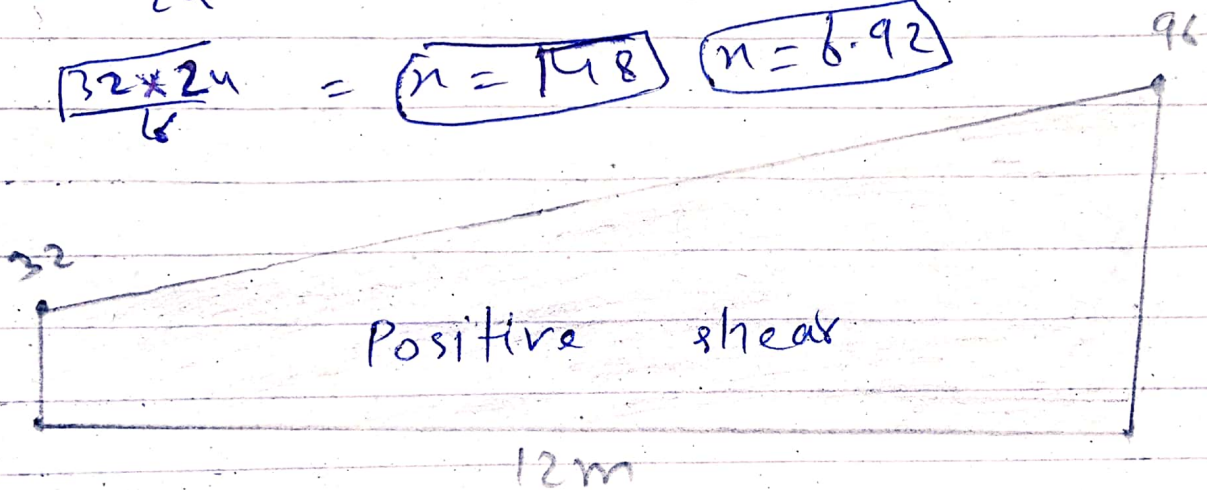 96
32*24/16 = x = √48 x = 6.92
32
Positive shear
12m